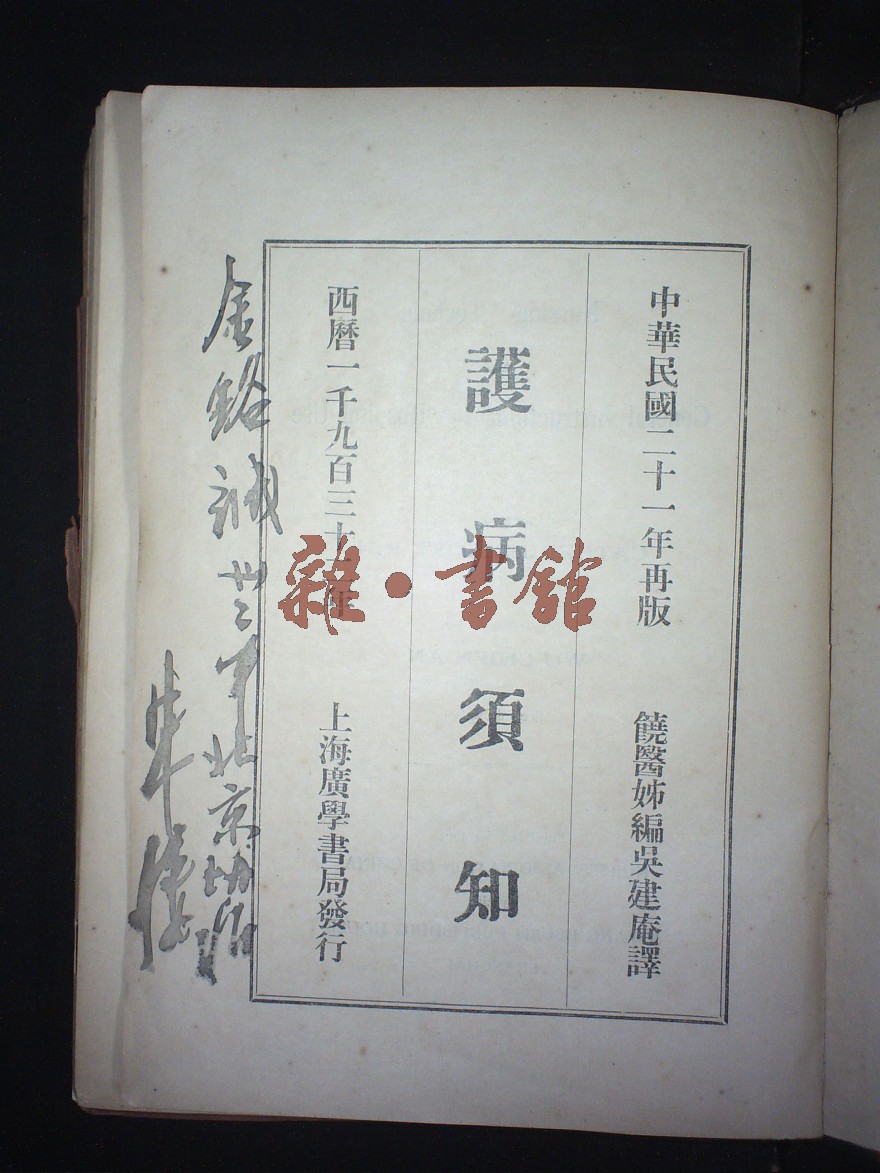 中華民國二十一年再版
饒醫姊編吳建庵譯
護病須知
西曆一千九百三十
上海廣學書局發行
金 誠 北京
雜·書館